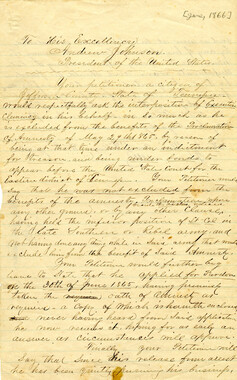 [Jan, 1866]
To His Excellency
Andrew Johnson.
President of the United States
Your petitioner a citizen of
State of Tennessee
would respectfully ask the interposition of Executive
Clemency in his behalf – in as much as he
is excluded from the benefits of the Proclamation
of Amnesty of May 29th 1865 by reason of
being at that time under an indictment
for Treason, and being under bonds to
appear before the United States Court for the
Eastern District of Tennessee. Your Petitioner would
say that he was not excluded from the
benefits of the amnesty Proclamation upon
any other ground, or by any other clause,
having held the inferior position of
in the late Southern or Rebel army and
not having domain they else in said army that would
exclude him from the benefit of said Amnesty
Your Petitioner would further beg
leave to state that he applied for Pardon
on the 30th of June 1865, having previously
taken the oath of Amnesty as
required – a copy of which is
never having heard from said application
he now renews it hoping for as early an
answer as circumstances will approve
Your Petitioner will
say that since his release from arrest
he has been quietly pursuing his business,